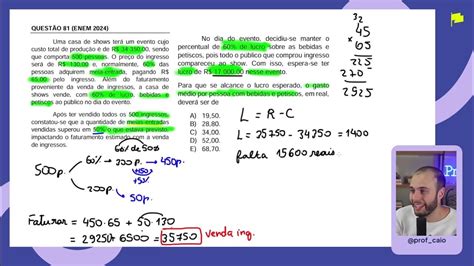 QUESTÃO 81 (ENEM 2024)
Uma casa de shows terá um evento cujo
custo total de produção é de R$ 34 350,00, sendo
que comporta 500 pessoas. O preço do ingresso
será de R$ 130,00 e, normalmente, 60% das
pessoas adquirem meia entrada, pagando R$
65,00 pelo ingresso. Além do faturamento
proveniente da venda de ingressos, a casa de
shows vende, com 60% de lucro, bebidas e
petiscos ao público no dia do evento.
Após ter vendido todos os 500 ingressos,
constatou-se que a quantidade de meias entradas
vendidas superou em 50% o que estava previsto,
impactando o faturamento estimado com a venda
de ingressos.
No dia do evento, decidiu-se manter o
percentual de 60% de lucro sobre as bebidas e
petiscos, pois todo o público que comprou ingresso
compareceu ao show. Com isso, espera-se ter
lucro de R$ 17 000,00 nesse evento.
Para que se alcance o lucro esperado, o gasto
médio por pessoa com bebidas e petiscos, em real,
deverá ser de
A) 19,50.
B) 28,80.
C) 34,00.
D) 52,00.
E) 68,70.
45
65
225
270
2925
L = R - C
L = 35750 - 34350 = 1400
falta 15600 reais
60% de 500
500p.
60%
300p.
450p.
+50%
200p.
50p.
Faturar = 450.65 + 50.130
= 29250 + 6500 = 35750 venda ing.
@prof_caio